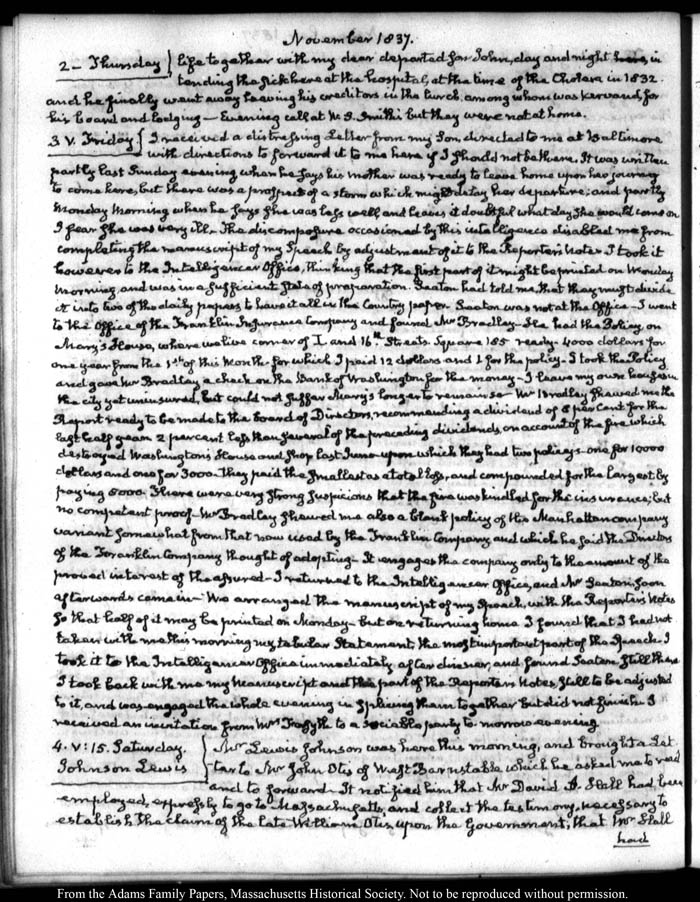 November 1837.
2 – Thursday } life together with my dear departed Son John, day and night in
tending the sick here at the hospital, at the time of the Cholera in 1832.
and he finally went away leaving his creditors in the lurch, among whom was for
his board and lodging – Evening call at W. S. Smith's but they were not at home.
3 V. Friday { I received a distressing Letter from my Son, directed to me at Baltimore
with directions to forward it to me here if I should not be there. It was written
partly last Sunday evening when he says his mother was ready to leave home upon her journey
to come here, but there was a prospect of a storm which might delay her departure; and partly
Monday Morning when he says she was less well and leaves it doubtful what day she would come on
I fear she was very ill – The discomposure occasioned by this intelligence disabled me from
completing the manuscript of my Speech by adjustment of it to the Reporter's Notes I took it
however to the Intelligencer Office, thinking that the first part of it might be printed on Monday
Morning and was in a sufficient State of preparation. Seaton had told me, that they must divide
it into two of the daily papers to have it all in the Country paper. Seaton was not at the Office – I went
to the Office of the Franklin Insurance Company and found Mr Bradley. He had the Policy, on
Mary's House, where we live corner of I and 16th Streets Square 185 ready – 4000 dollars for
one year from the 1st of this Month – for which I paid 12 dollars and 1 for the policy – I took the Policy
and gave Mr Bradley a check on the Bank of Washington for the money – I leave my own houses in
the city yet uninsured, but could not suffer Mary's longer to remain so – Mr Bradley shewed me the
Report ready to be made to the board of Directors, recommending a dividend of 8 per Cent for the
last half year. 2 percent less than several of the preceding dividends, on account of the fire which
destroyed Washington's House and shop last June upon which they had two policys – one for 10000
dollars and one for 3000 – They paid the smallest as a total loss, and compounded for the largest by
paying 5000 – There were very strong suspicions that the fire was kindled for the insurance; but
no competent proof – Mr Bradley shewed me also a blank policy of the Manhattan company
variant somewhat from that now used by the Franklin Company and which he said the Directors
of the Franklin Company thought of adopting – It engages the company only to the amount of the
proved interest of the assured – I returned to the Intelligencer Office, and Mr Seaton soon
afterwards came in – We arranged the manuscript of my Speech, with the Reporter's Notes
so that half of it may be printed on Monday – but on returning home I found that I had not
taken with me this morning my tabular Statement, the most important part of the Speech. I
took it to the Intelligencer Office immediately after dinner, and found Seaton still there
I took back with me my Manuscript and the part of the Reporters Notes, still to be adjusted
to it, and was engaged the whole evening in splicing them together but did not finish. I
received an invitation from Mrs Forsyth to a sociable party to-morrow evening.
4. V: 15. Saturday. { Mr Lewis Johnson was here this morning, and brought a Let-
Johnson Lewis ter to Mr John Otis of West Barnstable which he asked me to read
and to forward. It notified him that Mr David A. Hall had been
employed, expressly to go to Massachusetts, and collect the testimony, necessary to
establish the claim of the late William Otis, upon the Government; that Mr Hall
had
From the Adams Family Papers, Massachusetts Historical Society. Not to be reproduced without permission.